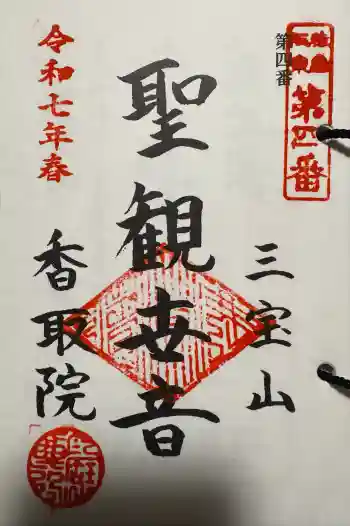 第四番
第四番
三宝山
聖観世音
香取院
令和七年春